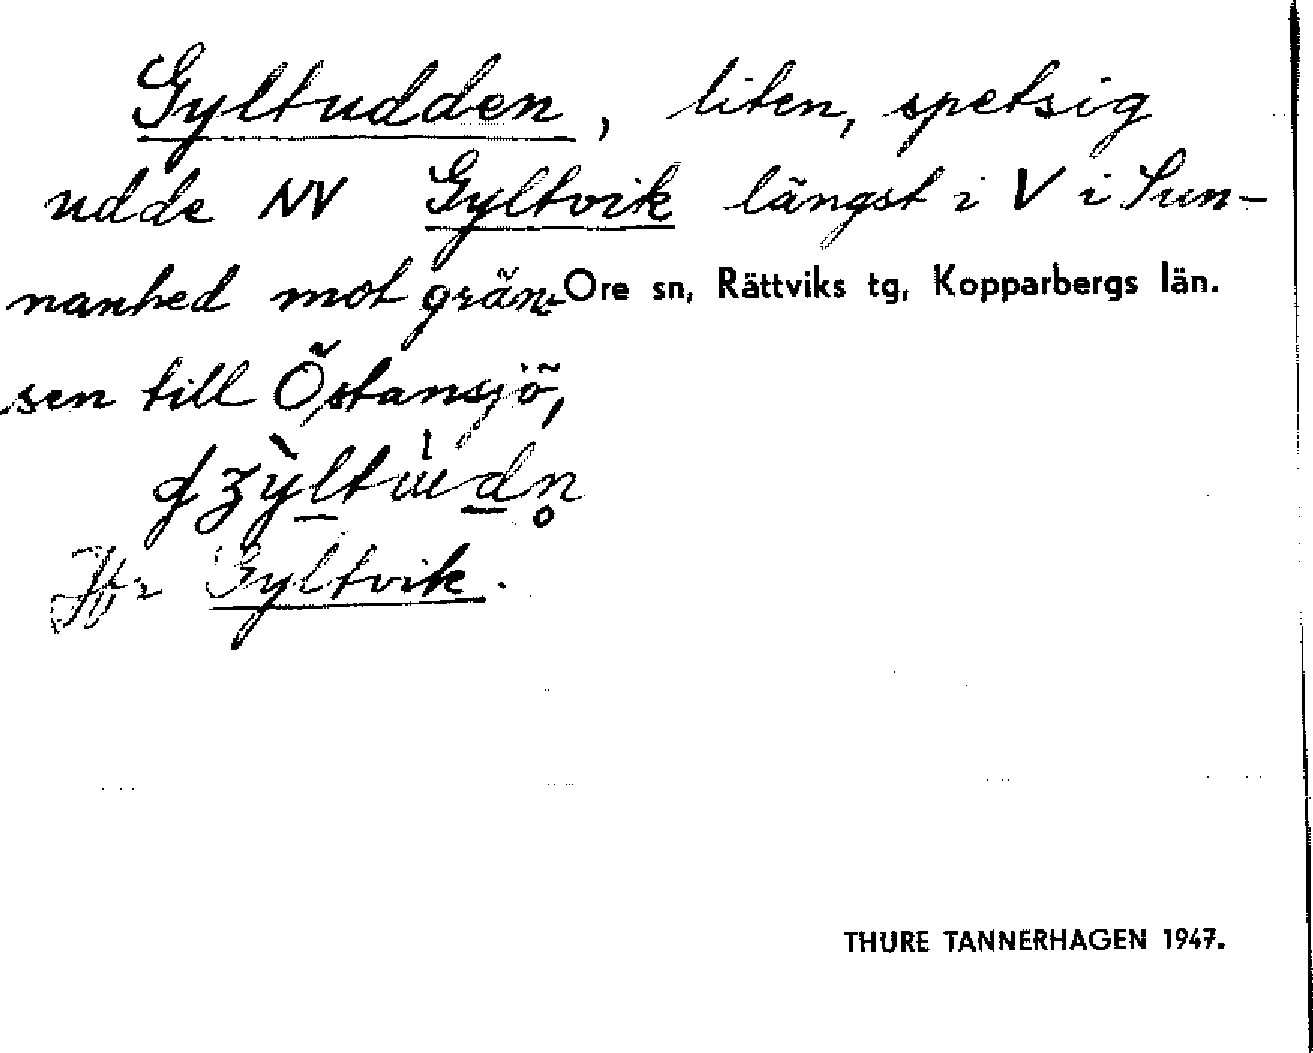 Gyltudden, liten, spetsig
udde NV Gyltvik längst i V i Sun-
nanhed mot grän-
Ore sn, Rättviks tg, Kopparbergs län.
sen till Östansjö,
Jfr Gyltvik.
THURE TANNERHAGEN 1947.